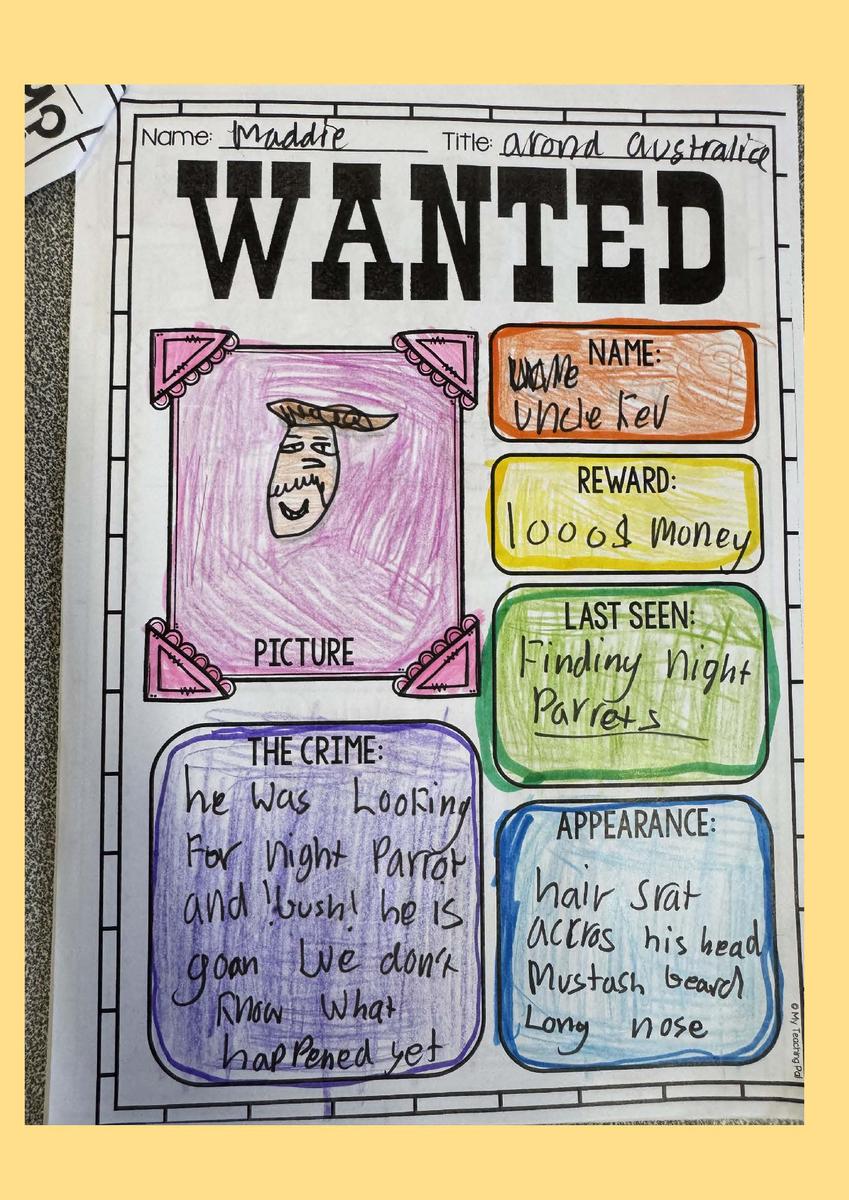 Name: Maddie Title: arond australia
WANTED
NAME:
uncle Kev
REWARD:
1000$ money
LAST SEEN:
Finding night
Parrets
PICTURE
THE CRIME:
he was Looking
For night Parrot
and !bush! he is
goan We don't
know What
happened yet
APPEARANCE:
hair srat
accros his head
Mustash beard
Long nose
© My Teaching Pal